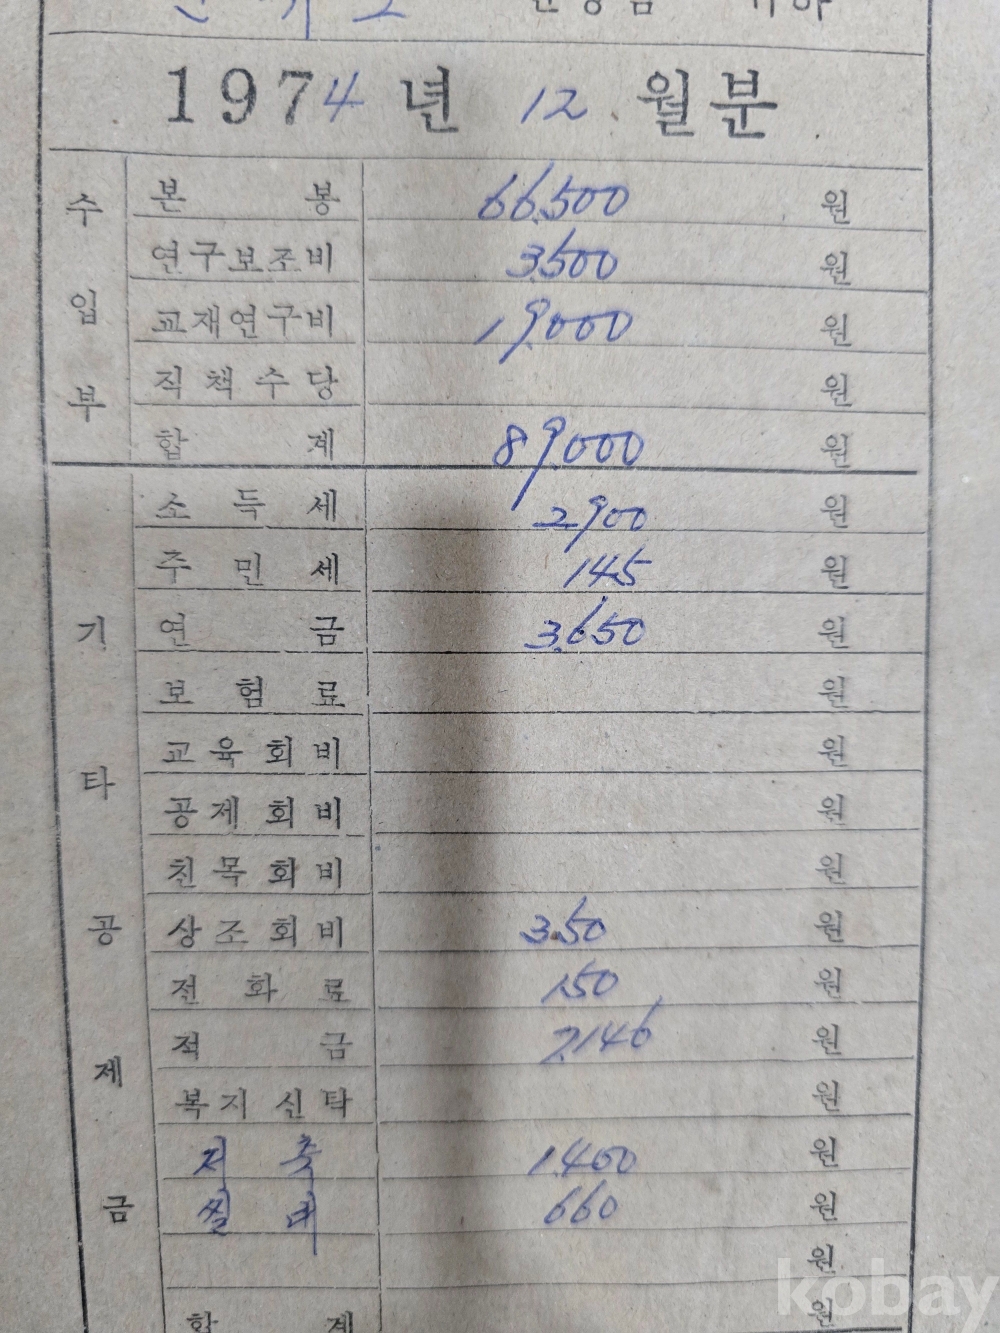 귀하
1974년 12월분
수입부
본봉 66,500 원
연구보조비 3,500 원
교재연구비 19,000 원
직책수당 원
합계 89,000 원
기타공제금
소득세 2,900 원
주민세 145 원
연금 3,650 원
보험료 원
교육회비 원
공제회비 원
친목회비 원
상조회비 350 원
전화료 150 원
적금 7,146 원
복지신탁 원
저축 1,400 원
660 원
원
합계 원
kobay